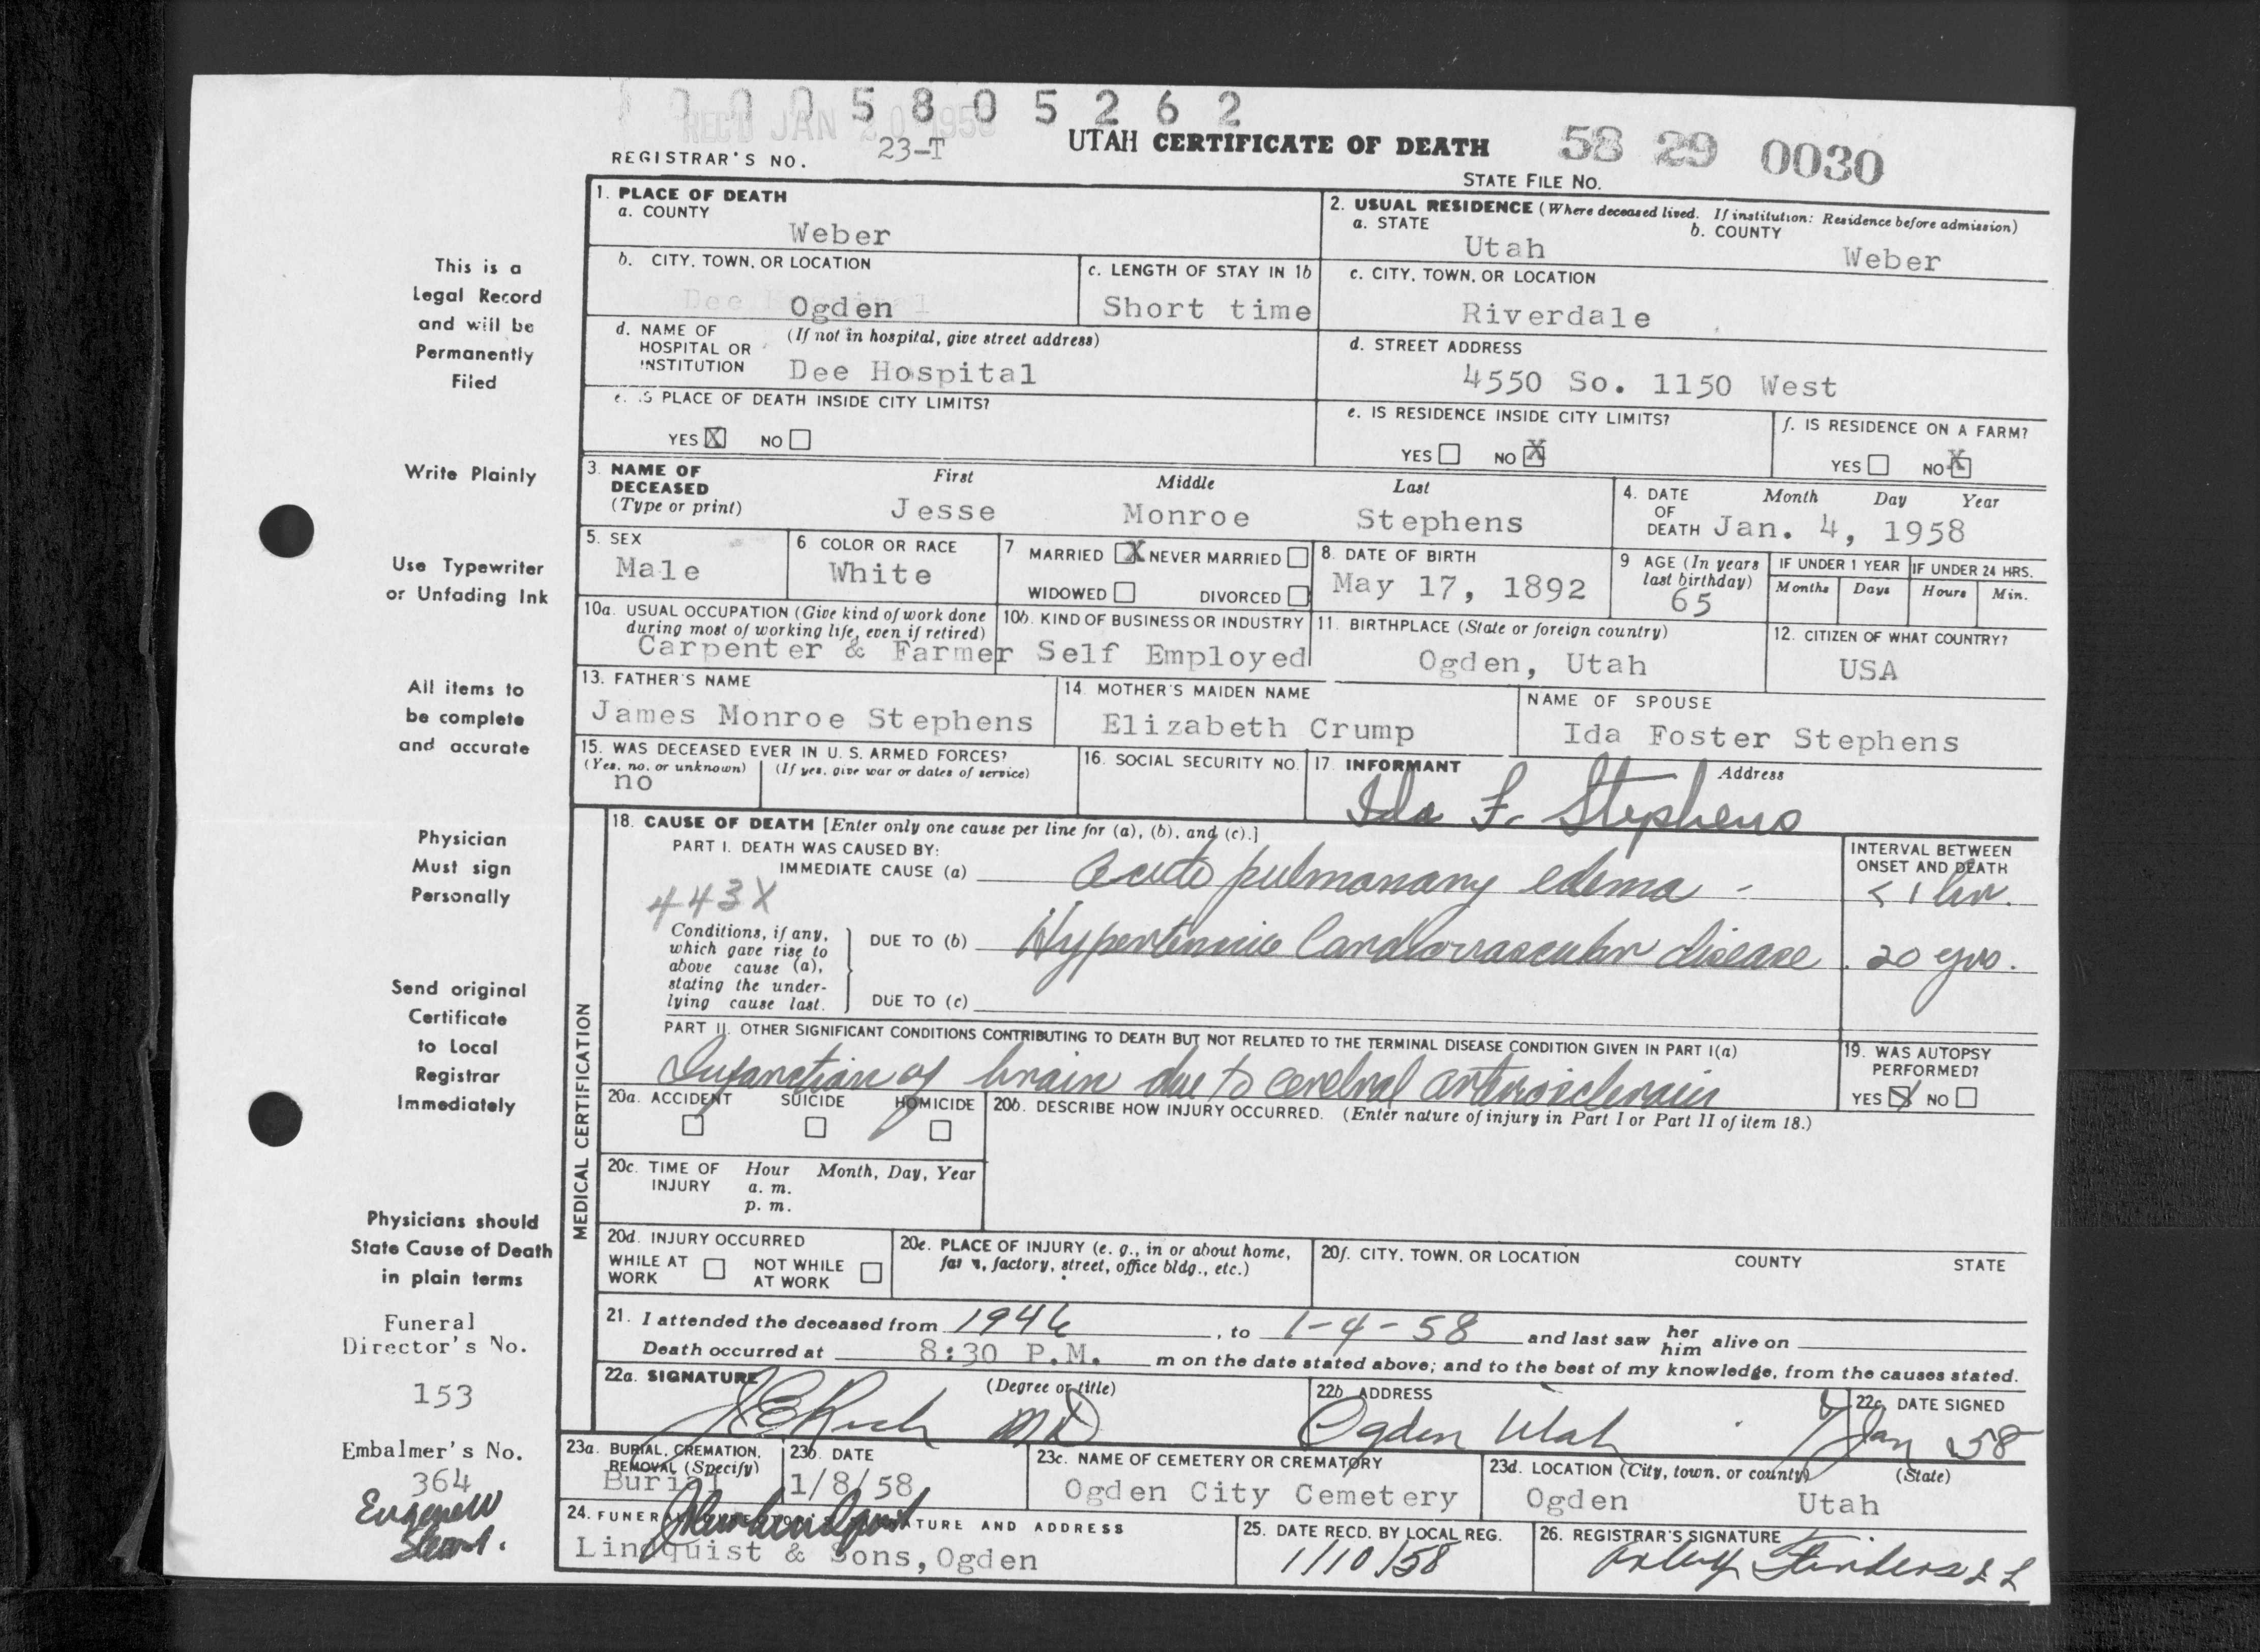 0 0 0 5 8 0 5 2 6 2
REC'D JAN 20 1958
REGISTRAR'S NO. 23-T
UTAH CERTIFICATE OF DEATH
58 29 0030
STATE FILE NO.
This is a
Legal Record
and will be
Permanently
Filed
Write Plainly
Use Typewriter
or Unfading Ink
All items to
be complete
and accurate
Physician
Must sign
Personally
Send original
Certificate
to Local
Registrar
Immediately
Physicians should
State Cause of Death
in plain terms
Funeral
Director's No.
153
Embalmer's No.
364
1. PLACE OF DEATH
a. COUNTY
Weber
2. USUAL RESIDENCE (Where deceased lived. If institution: Residence before admission)
a. STATE b. COUNTY
Utah Weber
b. CITY, TOWN, OR LOCATION
Ogden
c. LENGTH OF STAY IN 1b
Short time
c. CITY, TOWN, OR LOCATION
Riverdale
d. NAME OF (If not in hospital, give street address)
HOSPITAL OR
INSTITUTION Dee Hospital
d. STREET ADDRESS
4550 So. 1150 West
e. IS PLACE OF DEATH INSIDE CITY LIMITS?
YES X NO
e. IS RESIDENCE INSIDE CITY LIMITS?
YES NO X
f. IS RESIDENCE ON A FARM?
YES NO X
3. NAME OF DECEASED (Type or print)
First Middle Last
Jesse Monroe Stephens
4. DATE OF DEATH
Month Day Year
Jan. 4, 1958
5. SEX
Male
6 COLOR OR RACE
White
7 MARRIED X NEVER MARRIED
WIDOWED DIVORCED
8. DATE OF BIRTH
May 17, 1892
9 AGE (In years last birthday)
65
IF UNDER 1 YEAR
Months Days
IF UNDER 24 HRS.
Hours Min.
10a. USUAL OCCUPATION (Give kind of work done
during most of working life, even if retired)
Carpenter & Farmer
10b. KIND OF BUSINESS OR INDUSTRY
Self Employed
11. BIRTHPLACE (State or foreign country)
Ogden, Utah
12. CITIZEN OF WHAT COUNTRY?
USA
13. FATHER'S NAME
James Monroe Stephens
14. MOTHER'S MAIDEN NAME
Elizabeth Crump
NAME OF SPOUSE
Ida Foster Stephens
15. WAS DECEASED EVER IN U. S. ARMED FORCES?
(Yes, no, or unknown) (If yes, give war or dates of service)
no
16. SOCIAL SECURITY NO.
17. INFORMANT Address
Ida F. Stephens
MEDICAL CERTIFICATION
18. CAUSE OF DEATH [Enter only one cause per line for (a), (b), and (c).]
PART I. DEATH WAS CAUSED BY:
IMMEDIATE CAUSE (a) Acute pulmonary edema -
INTERVAL BETWEEN
ONSET AND DEATH
< 1 hr.
443X
Conditions, if any,
which gave rise to
above cause (a),
stating the under-
lying cause last.
DUE TO (b) Hypertensive Cardiovascular disease 20 yrs.
DUE TO (c)
PART II. OTHER SIGNIFICANT CONDITIONS CONTRIBUTING TO DEATH BUT NOT RELATED TO THE TERMINAL DISEASE CONDITION GIVEN IN PART I(a)
Infarction of brain due to cerebral arteriosclerosis
19. WAS AUTOPSY
PERFORMED?
YES X NO
20a. ACCIDENT SUICIDE HOMICIDE
20b. DESCRIBE HOW INJURY OCCURRED. (Enter nature of injury in Part I or Part II of item 18.)
20c. TIME OF INJURY
Hour Month, Day, Year
a. m.
p. m.
20d. INJURY OCCURRED
WHILE AT WORK NOT WHILE AT WORK
20e. PLACE OF INJURY (e. g., in or about home,
farm, factory, street, office bldg., etc.)
20f. CITY, TOWN, OR LOCATION COUNTY STATE
21. I attended the deceased from 1946, to 1-4-58 and last saw her him alive on
Death occurred at 8:30 P.M. m on the date stated above; and to the best of my knowledge, from the causes stated.
22a. SIGNATURE (Degree or title)
Rich MD
22b ADDRESS
Ogden Utah
22c. DATE SIGNED
Jan 58
23a. BURIAL, CREMATION,
REMOVAL (Specify)
Burial
23b. DATE
1/8/58
23c. NAME OF CEMETERY OR CREMATORY
Ogden City Cemetery
23d. LOCATION (City, town, or county) (State)
Ogden Utah
24. FUNERAL DIRECTOR'S SIGNATURE AND ADDRESS
Lindquist & Sons, Ogden
25. DATE RECD. BY LOCAL REG.
1/10/58
26. REGISTRAR'S SIGNATURE